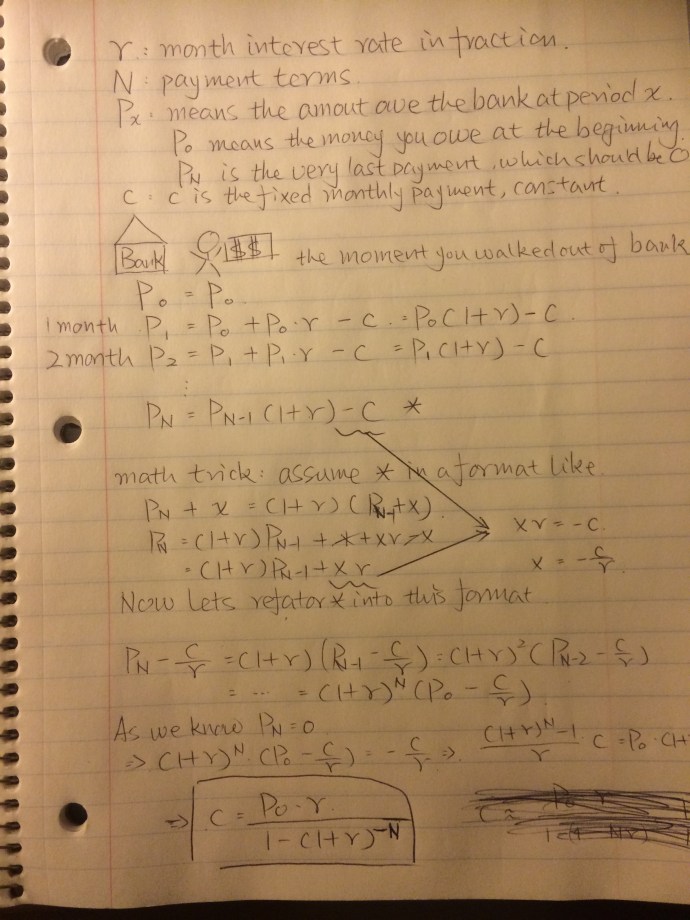 r : month interest rate in fraction.
N : payment terms.
Px : means the amout owe the bank at period x.
P0 means the money you owe at the beginning.
PN is the very last payment, which should be 0
C : c is the fixed monthly payment, constant.
Bank $$ the moment you walked out of bank
P0 = P0.
1 month P1 = P0 + P0·r - c = P0(1+r) - C
2 month P2 = P1 + P1·r - C = P1(1+r) - C
⋮
PN = PN-1 (1+r) - C *
math trick: assume * in a format like
PN + x = (1+r)(PN-1+x)
PN = (1+r)PN-1 + x + xr - x
= (1+r)PN-1 + xr
xr = -c.
x = -c/r.
Now lets refator * into this format
PN - c/r = (1+r)(PN-1 - c/r) = (1+r)²(PN-2 - c/r)
= ... = (1+r)^N (P0 - c/r)
As we know PN = 0
⇒ (1+r)^N · (P0 - c/r) = - c/r ⇒ ((1+r)^N - 1)/r · C = P0 · (1+
⇒ C = P0·r / (1 - (1+r)^-N)